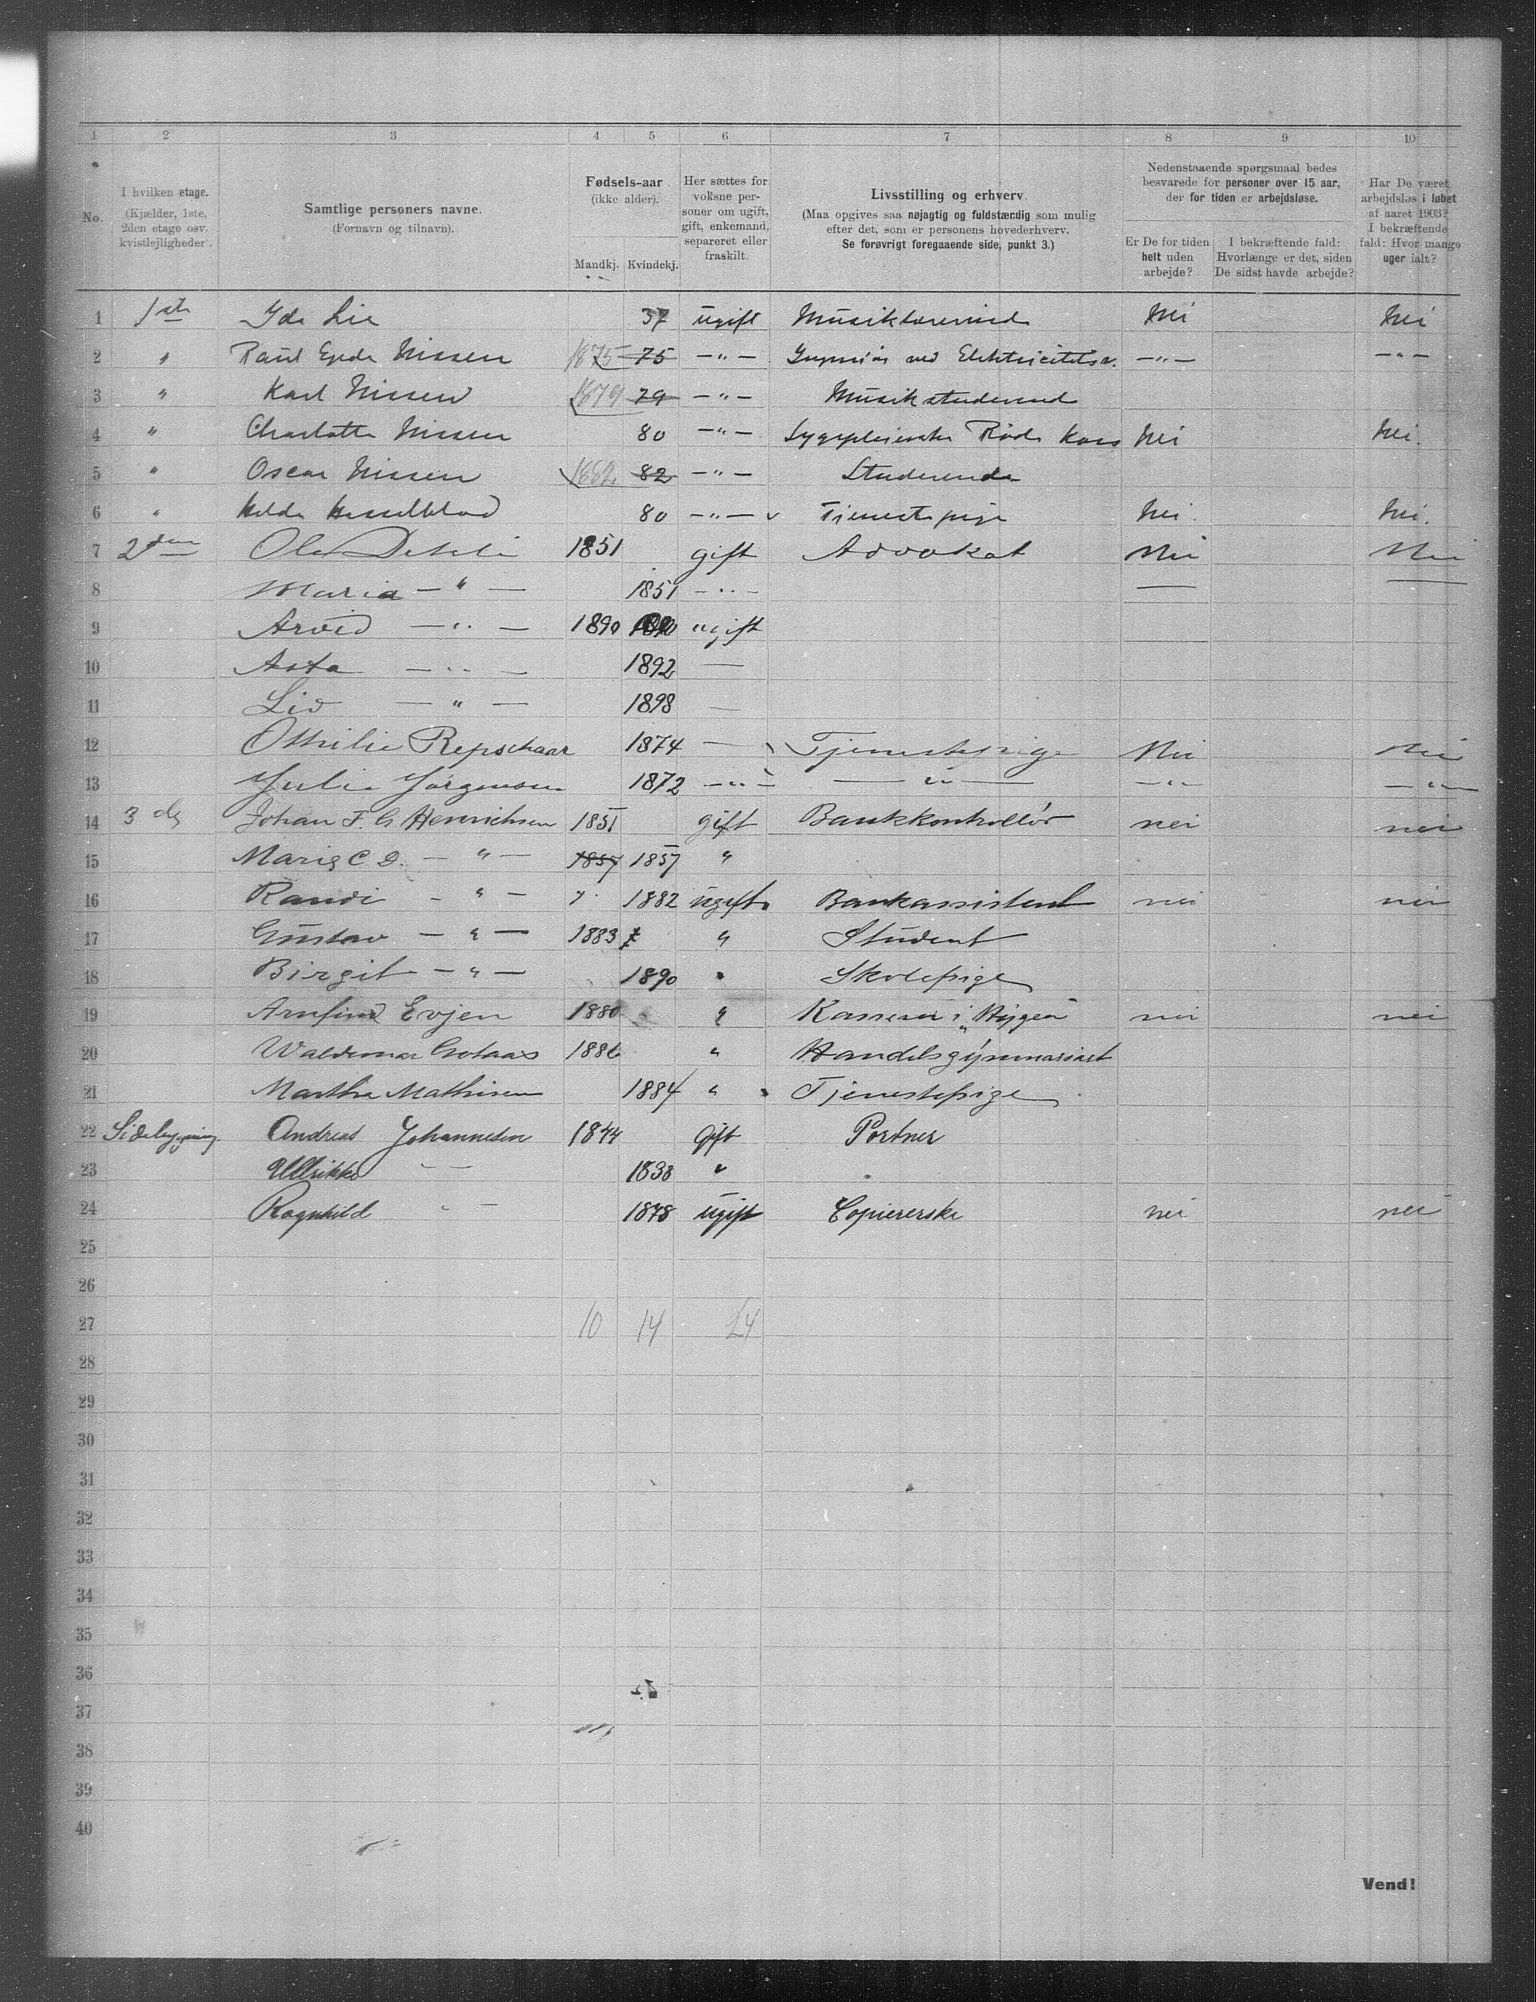 1 2 3 4 5 6 7 8 9 10
No.
I hvilken etage.
(Kjælder, 1ste, 2den etage osv. kvistlejligheder).
Samtlige personers navne.
(Fornavn og tilnavn).
Fødsels-aar
(ikke alder).
Mandkj. Kvindekj.
Her sættes for voksne personer om ugift, gift, enkemand, separeret eller fraskilt.
Livsstilling og erhverv
(Maa opgives saa nøjagtig og fuldstændig som mulig
efter det, som er personens hovederhverv.
Se forøvrigt foregaaende side, punkt 3.)
Nedenstaaende spørgsmaal bedes
besvarede for personer over 15 aar,
der for tiden er arbejdsløse.
Er De for tiden helt uden arbejde?
I bekræftende fald: Hvorlænge er det, siden De sidst havde arbejde?
Har De været arbejdsløs i løbet af aaret 1903? I bekræftende fald: Hvor mange uger ialt?
1 1ste Ida Lie 37 ugift Musiklærerinde Nei Nei
2 " Paul Egede Nissen 1875 75 —"— Ingeniør ved Elektricitetsv. —"— —"—
3 " Karl Nissen 1879 79 —"— Musikstuderend
4 " Charlotte Nissen 80 —"— Sygepleierske Røde Kors Nei Nei.
5 " Oscar Nissen 1882 82 —"— Studerende
6 " Helda Hesselblad 80 —"— Tjenestepige Nei. Nei.
7 2den Ole 1851 gift Advokat Nei Nei
8 Maria —"— 1851 —"— —
9 Arvid —"— 1890 1890 ugift
10 Asta —"— 1892 —
11 Liv —"— 1898 —
12 Othilie Repschaar 1874 — Tjenestepige Nei Nei
13 Julie Jørgensen 1872 —"— —"— —"— —"—
14 3die Johan F. G Henrichsen 1851 gift Bankkontrollør nei nei
15 Marie C. D. —"— 1857 1857 "
16 Randi —"— 1882 ugift Bankassistent nei nei
17 Gustav —"— 1883 " Student
18 Birgit —"— 1890 " Skolepige
19 Arnfind Evjen 1880 " Kasserer i "Hygea nei nei
20 Waldemar Grotaas 1886 " Handelsgymnasiast
21 Martha Mathisen 1884 " Tjenestepige
22 Sidebygning Andreas Johannesen 1844 Gift Portner
23 Ullrikke — — 1838 "
24 Ragnhild " — 1878 ugift Copiererske nei nei
25
26
27 10 14 24
28
29
30
31
32
33
34
35
36
37
38
39
40
Vend!